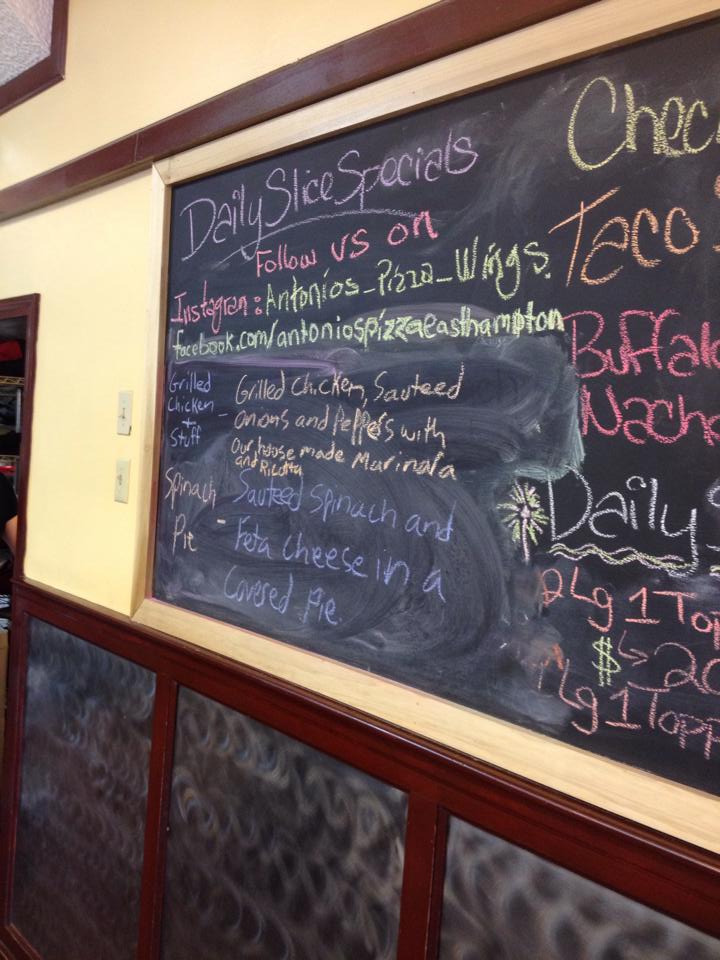 Daily Slice Specials
Follow us on
Instagram: Antonios_Pizza_Wings
facebook.com/antoniospizzaeasthampton
Grilled
Chicken
+
Stuff
- Grilled Chicken, Sauteed
onions and Peppers with
our house made Marinara
and Ricotta
Spinach
Pie
- Sauteed Spinach and
Feta Cheese in a
Covered Pie.
Chec
Taco
Buffal
Nach
Daily S
2 Lg 1 Top
$ 20
1 Lg 1 Topp